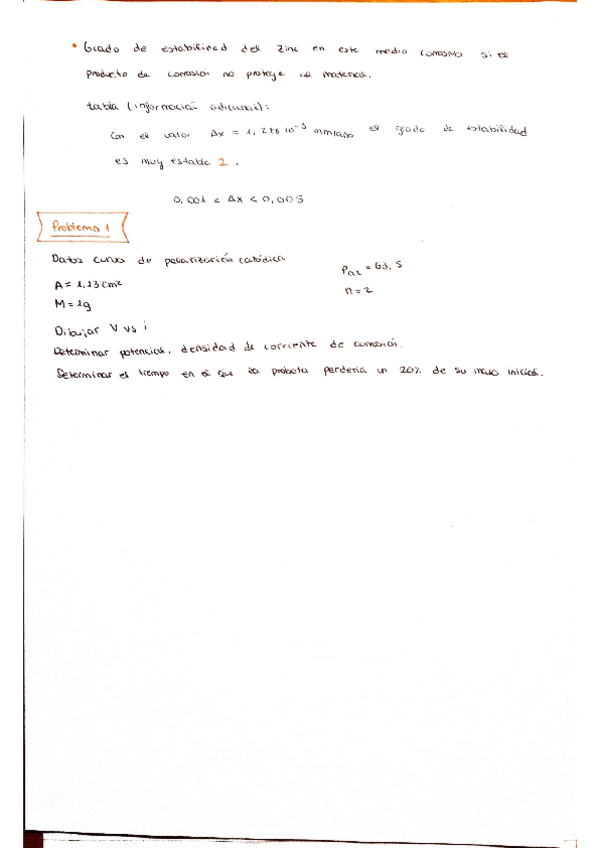 • Grado de estabilidad del Zinc en este medio corrosivo si el
producto de corrosión no protege el material.
tabla (información adicional):
Con el valor Δx = 1,276·10⁻³ mm/año el grado de estabilidad
es muy estable 2.
0,001 < Δx < 0,005
Problema 1
Datos curva de polarización catódica
A = 1,13 cm²
M = 1g
Pat = 63,5
n = 2
Dibujar V vs i
Determinar potencial, densidad de corriente de corrosión.
Determinar el tiempo en el que la probeta perdería un 20% de su masa inicial.